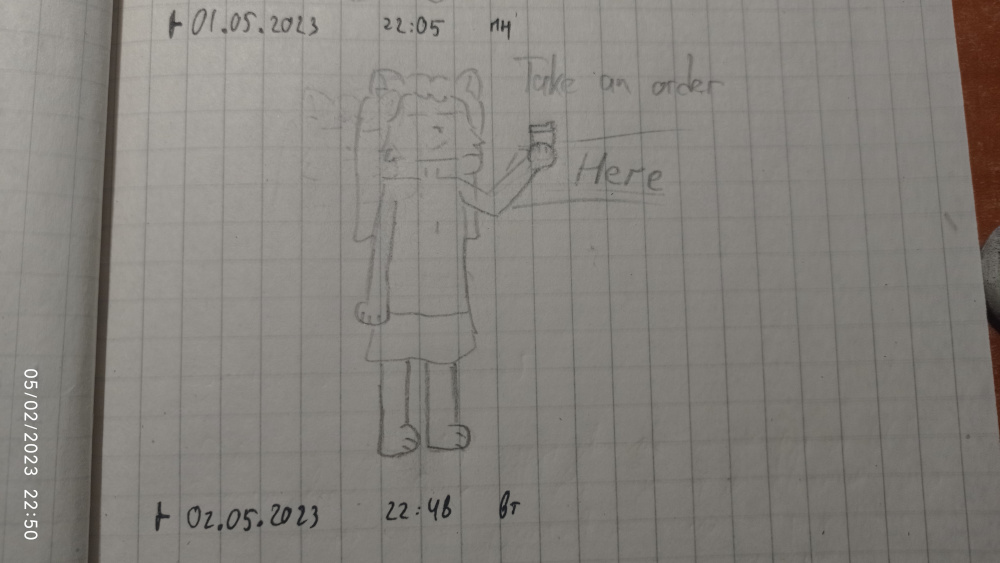 01.05.2023 22:05 пн
Take an order
Here
02.05.2023 22:48 вт
05/02/2023 22:50